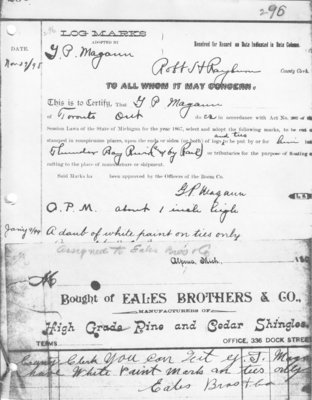 296
LOG MARKS
DATE.
ADOPTED BY
Received for Record on Date Indicated in Date Column.
G. P. Magann
Robt H Rayburn
County Clerk.
TO ALL WHOM IT MAY CONCERN:
This is to Certify, That G P Magann
of Toronto Ont do in accordance with Act No. of the
Session Laws of the State of Michigan for the year 1867, select and adopt the following marks, to be cut and
stamped in conspicuous places, upon the ends or sides (or both) of logs to be put by or for
and ties
Thunder Bay River (& by Rail) or tributaries for the purpose of floating
rafting to the place of manufacture or shipment.
Said Marks have been approved by the Officers of the Boom Co.
G. P. Magann
O.P.M. about 1 inch high
A daub of white paint on ties only
Assigned to Eales Bros & Co
Alpena, Mich.
Bought of EALES BROTHERS & CO.,
MANUFACTURERS OF
High Grade Pine and Cedar Shingles
TERMS
OFFICE, 336 DOCK STREET
County Clerk You can let G. P. Magann
have White Paint mark on ties only
Eales Bros & Co